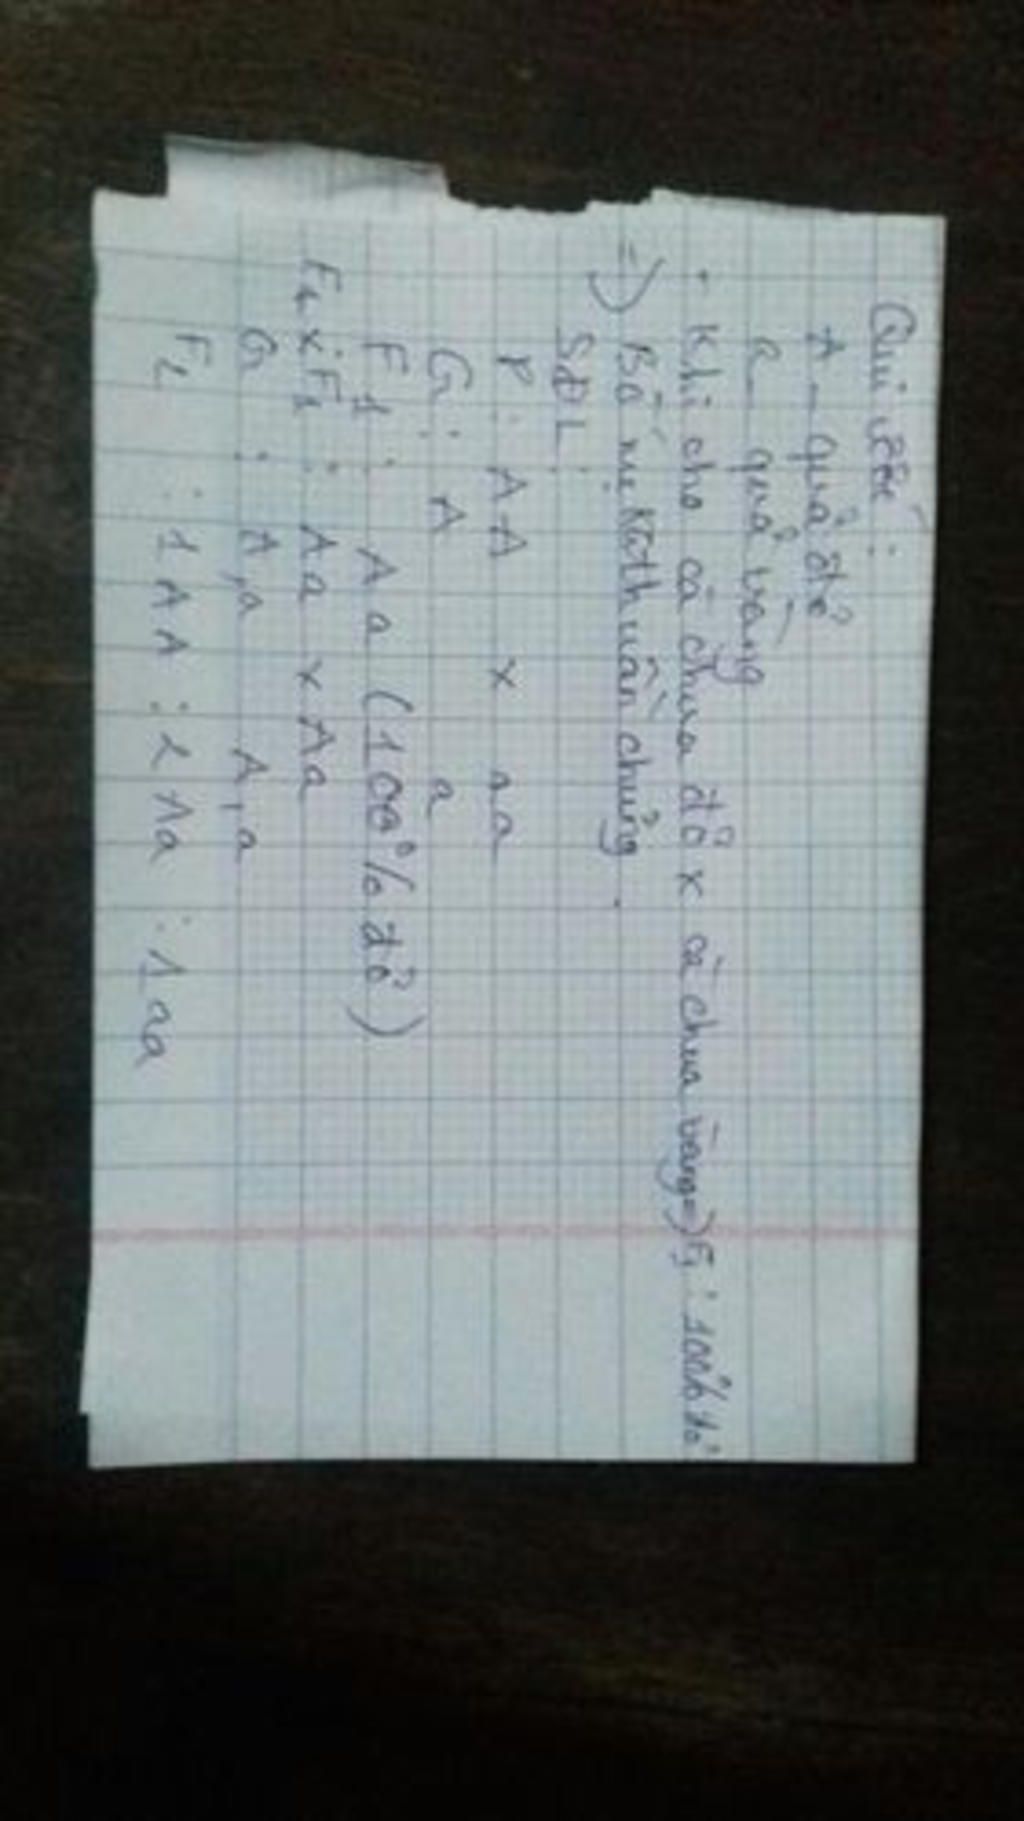 Qui ước:
A - quả đỏ
a - quả vàng
. Khi cho cà chua đỏ x cà chua vàng => F1 : 100% đỏ
=> Bố mẹ thuần chủng.
SĐL:
P : AA x aa
G : A a
F1 : Aa (100% đỏ)
F1 x F1 : Aa x Aa
G : A,a A,a
F2 : 1AA : 2Aa : 1aa